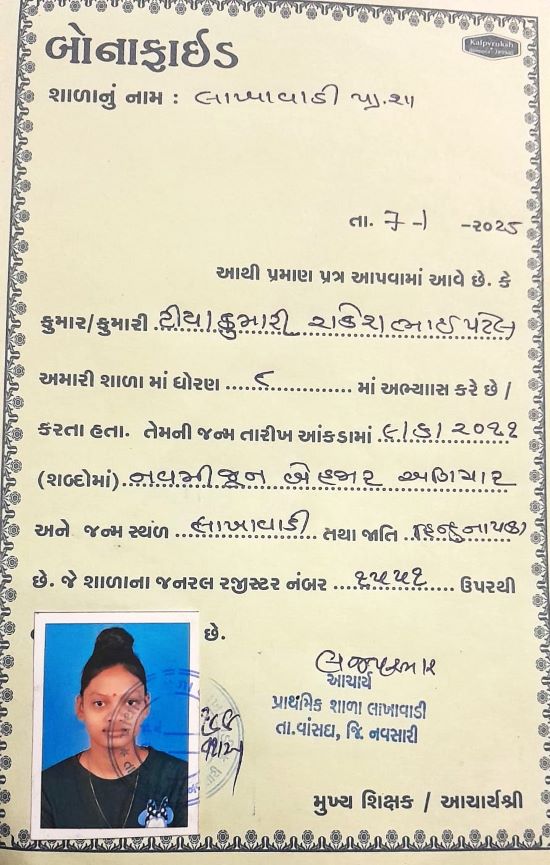 બોનાફાઈડ
Kalpvruksh
શાળાનું નામ : લાખાવાડી પ્રા.શા
તા. 7-1 -૨૦૨૫
આથી પ્રમાણ પત્ર આપવામાં આવે છે. કે
કુમાર/કુમારી રાકેશભાઈ પટેલ
અમારી શાળા માં ધોરણ માં અભ્યાસ કરે છે /
કરતા હતા. તેમની જન્મ તારીખ આંકડામાં ૯/૬/૨૦૧૧
(શબ્દોમાં) નવમી જૂન બે હજાર અગિયાર
અને જન્મ સ્થંળ લાખાવાડી તથા જાતિ હિન્દુ નાયકા
છે. જે શાળાના જનરલ રજીસ્ટર નંબર ૧૫૫૧ ઉપરથી
છે.
આચાર્ય
પ્રાથમિક શાળા લાખાવાડી
તા.વાંસદા, જિ. નવસારી
મુખ્ય શિક્ષક / આચાર્યશ્રી